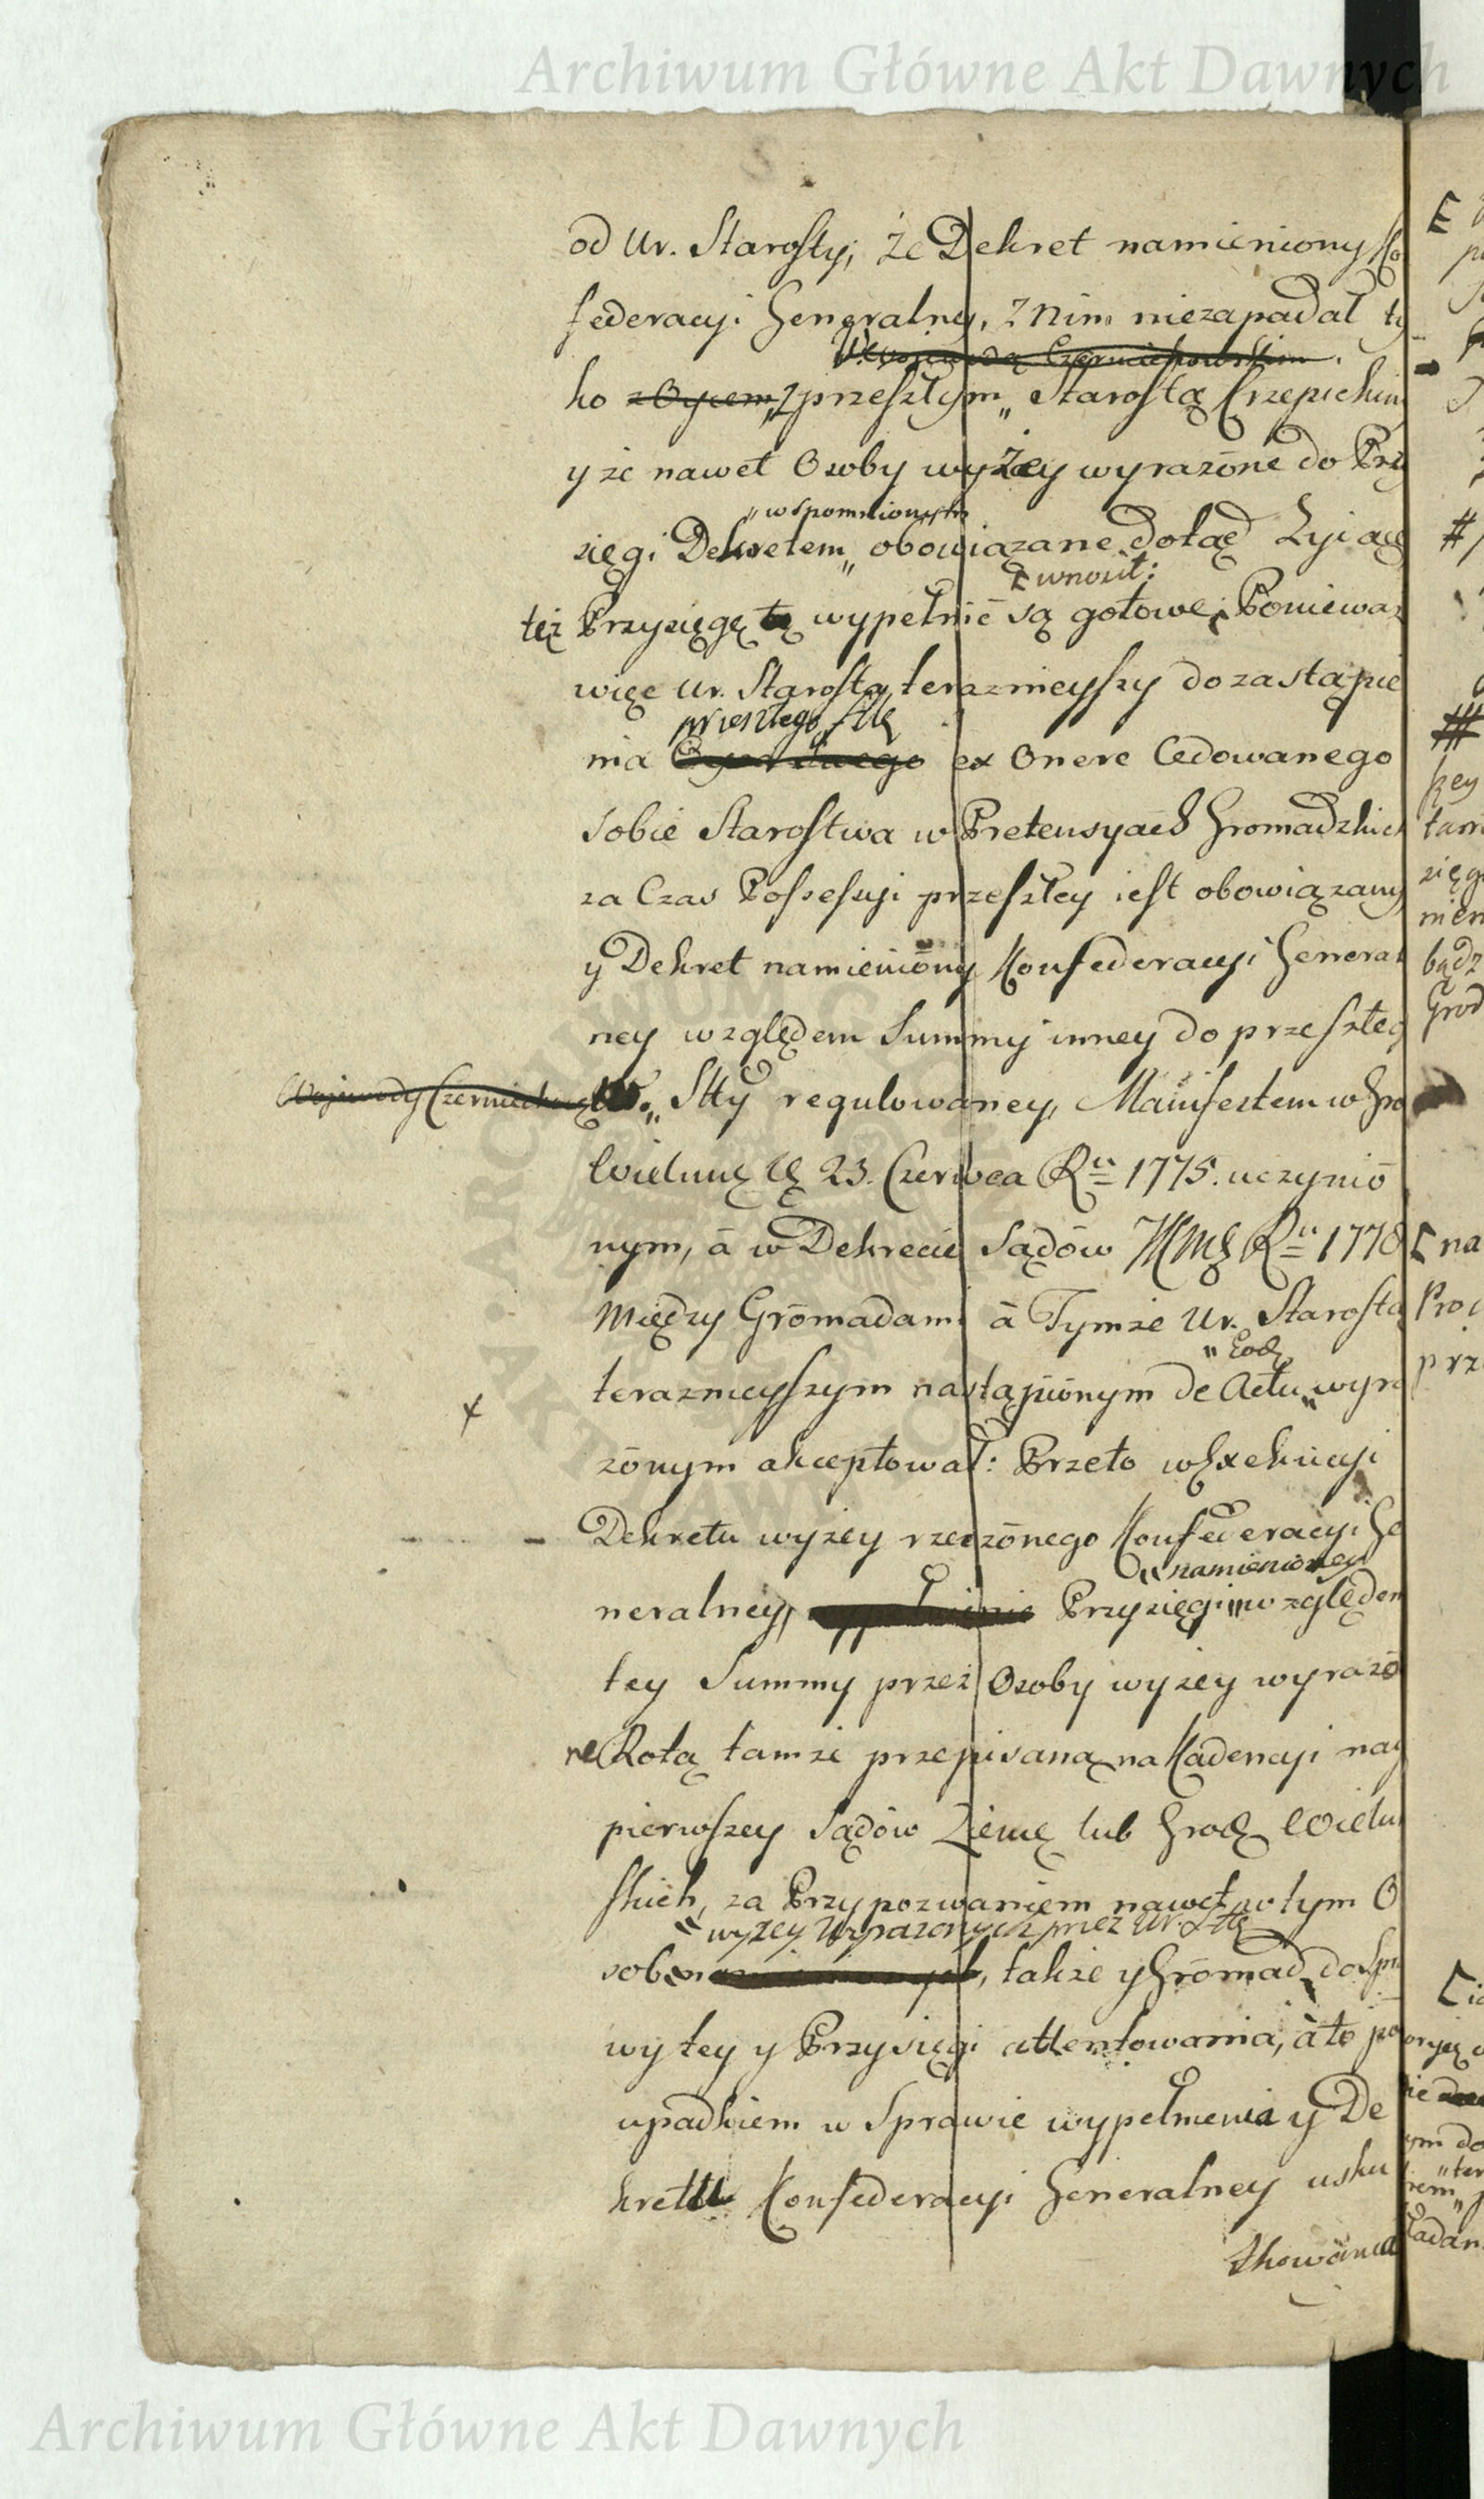 Archiwum Główne Akt Dawnych
od Ur. Starosty; Że Dekret namieniony Ko
federacyi Generalney, z Nim niezapadał ty
Wojewodą Czerniechowskim
ko z Oycem, z przeszłym „ Starostą Krzepickim
y że nawet Osoby wyżey wyrażone do Przy
„wspomnionym
sięgi Dekretem „ obowiązane dotąd żyiące
[wnosił:
też Przysięgę tę wypełnić są gotowe; Poniewaz
więc Ur. Starosta teraznieyszy do zastąpie
przeszłego Sttę
nia Oyca Swego ex Onere Cedowanego
sobie Starostwa w Pretensyach Gromadzkich
za Czas Possessyi przeszłey iest obowiązany
y Dekret namieniony Konfederacyi General
ney względem Summy inney do przeszłeg
Wojewody Czerniechowskiego „ Stty regulowaney, Manifestem w Gro
Wieluńę Dę 23. Czerwca Ru 1775. uczynio
nym, á w Dekrecie Sądów JKMę Ru 1778
Między Gromadami á Tymże Ur. Starostą
„Eodę
teraznieyszym nastąpionym de Actu „ wyra
żonym akceptował: Przeto w Exekucyi
Dekretu wyżey rzeczonego Konfederacyi Ge
„namienioney
neralney, wypełnienie Przysięgi „ względem
tey Summy przez Osoby wyżey wyrażo
ne Rotą tamże przepisaną na Kadencyi nay
pierwszey Sądów Ziemę lub Grodę Wieluń
skich, za Przypozwaniem nawet po tym O
„wyżey Wyrażonych przez Ur. Sttę
sob namienionych, także y Gromad do Spra
wy tey y Przysięgi attentowania, á to po
upadkiem w Sprawie wypełnienia y De
kretu Konfederacyi Generalney usku
tkowania
[na
Archiwum Główne Akt Dawnych